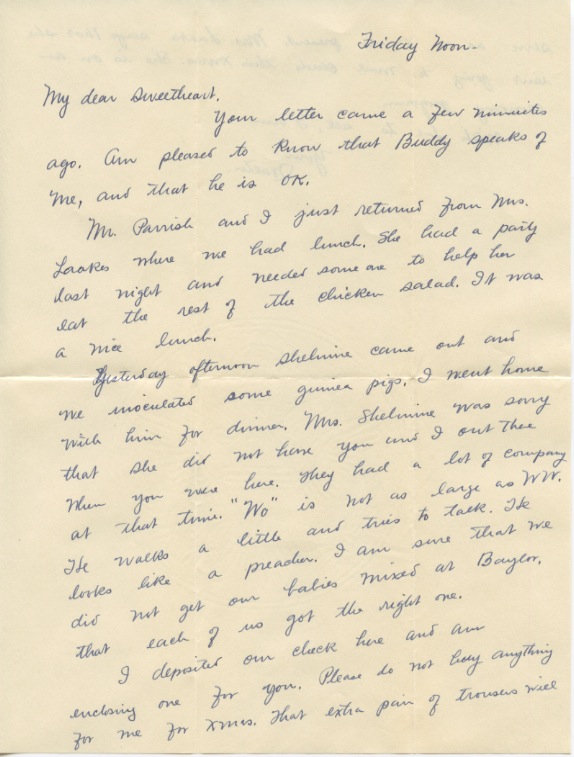 Friday Noon.
My dear Sweetheart,
Your letter came a few minuites
ago. Am pleased to know that Buddy speaks of
me, and that he is OK.
Mr. Parrish and I just returned from Mrs.
Laakes where we had lunch. She had a party
last night and needed someone to help her
eat the rest of the chicken salad. It was
a nice lunch.
Yesterday afternoon Shelmire came out and
we inoculated some guinea pigs. I went home
with him for dinner. Mrs. Shelmire was sorry
that she did not have you and I out thee
when you were here. They had a lot of company
at that time. "Wo" is not as large as WW.
He walks a little and tries to talk. He
looks like a preacher. I am sure that we
did not get our babies mixed at Baylor,
that each of us got the right one.
I deposited our check here and am
enclosing one for you. Please do not buy anything
for me for Xmas. That extra pair of trousers will